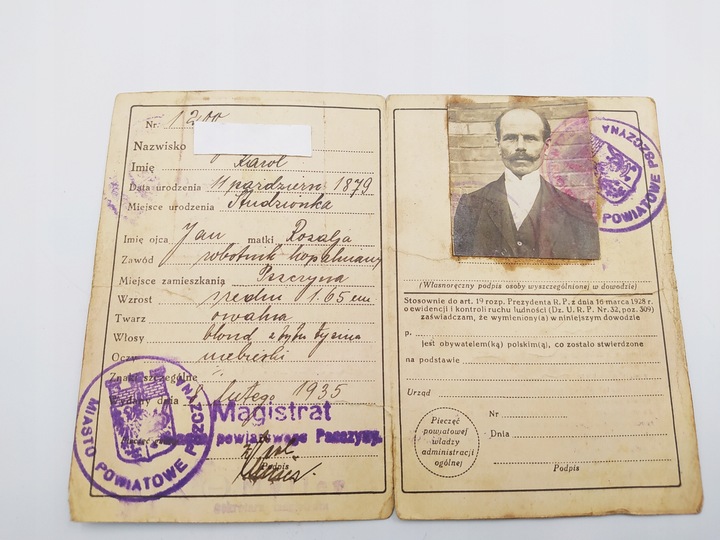 Nr. 1200
Nazwisko
Imię Karol
Data urodzenia 11 październ. 1879
Miejsce urodzenia Studzionka
Imię ojca Jan matki Rozalja
Zawód robotnik kopalniany
Miejsce zamieszkania Pszczyna
Wzrost średni 1.65 cm
Twarz owalna
Włosy blond z tyłu łysina
Oczy niebieski
Znaki szczególne
Wydany dnia lutego 1935
Magistrat
powiatowego Pszczyny.
Podpis
MIASTO POWIATOWE PSZCZYNA
POWIATOWE PSZCZYNA
(Własnoręczny podpis osoby wyszczególnionej w dowodzie)
Stosownie do art. 19 rozp. Prezydenta R. P. z dnia 16 marca 1928 r.
o ewidencji i kontroli ruchu ludności (Dz. U. R. P. Nr. 32, poz. 309)
zaświadczam, że wymieniony(a) w niniejszym dowodzie
p.
jest obywatelem(ką) polskim(ą), co zostało stwierdzone
na podstawie
Urząd
Nr
Dnia
Pieczęć
powiatowej
władzy
administracji
ogólnej
Podpis